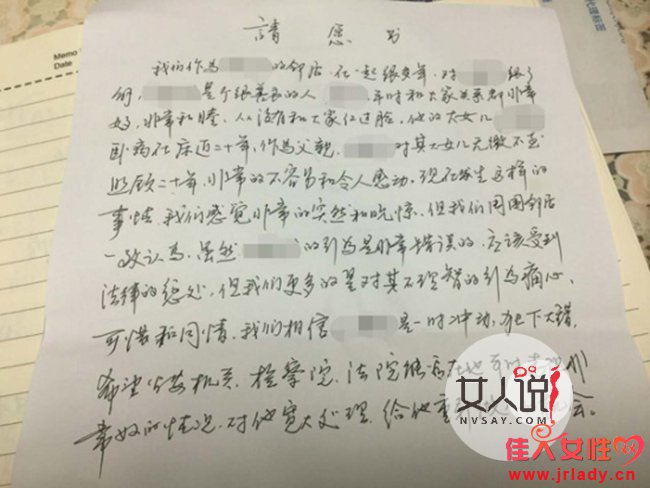 Memo
Date
請愿书
我们作为 的邻居,在一起很多年,对 很了
解, 是个很善良的人 平时和大家关系都非常
好,非常和睦,从没有和大家红过脸,他的大女儿
卧病在床近二十年,作为父親, 对其大女儿无微不至
照顾二十年,非常的不容易和令人感动,现在发生这样的
事情我们感觉非常的突然和吃惊,但我们周围邻居
一致认为,虽然 的引为是非常错误的,应该受到
法律的惩处,但我们更多的是对其不理智的引为痛心、
可惜和同情,我们相信 是一时冲动,犯下大错,
希望公安机关、检察院、法院能
的情况,对他宽大处理,给他重 会。
女人说
NVSAY.COM
佳人女性网
www.jrlady.com